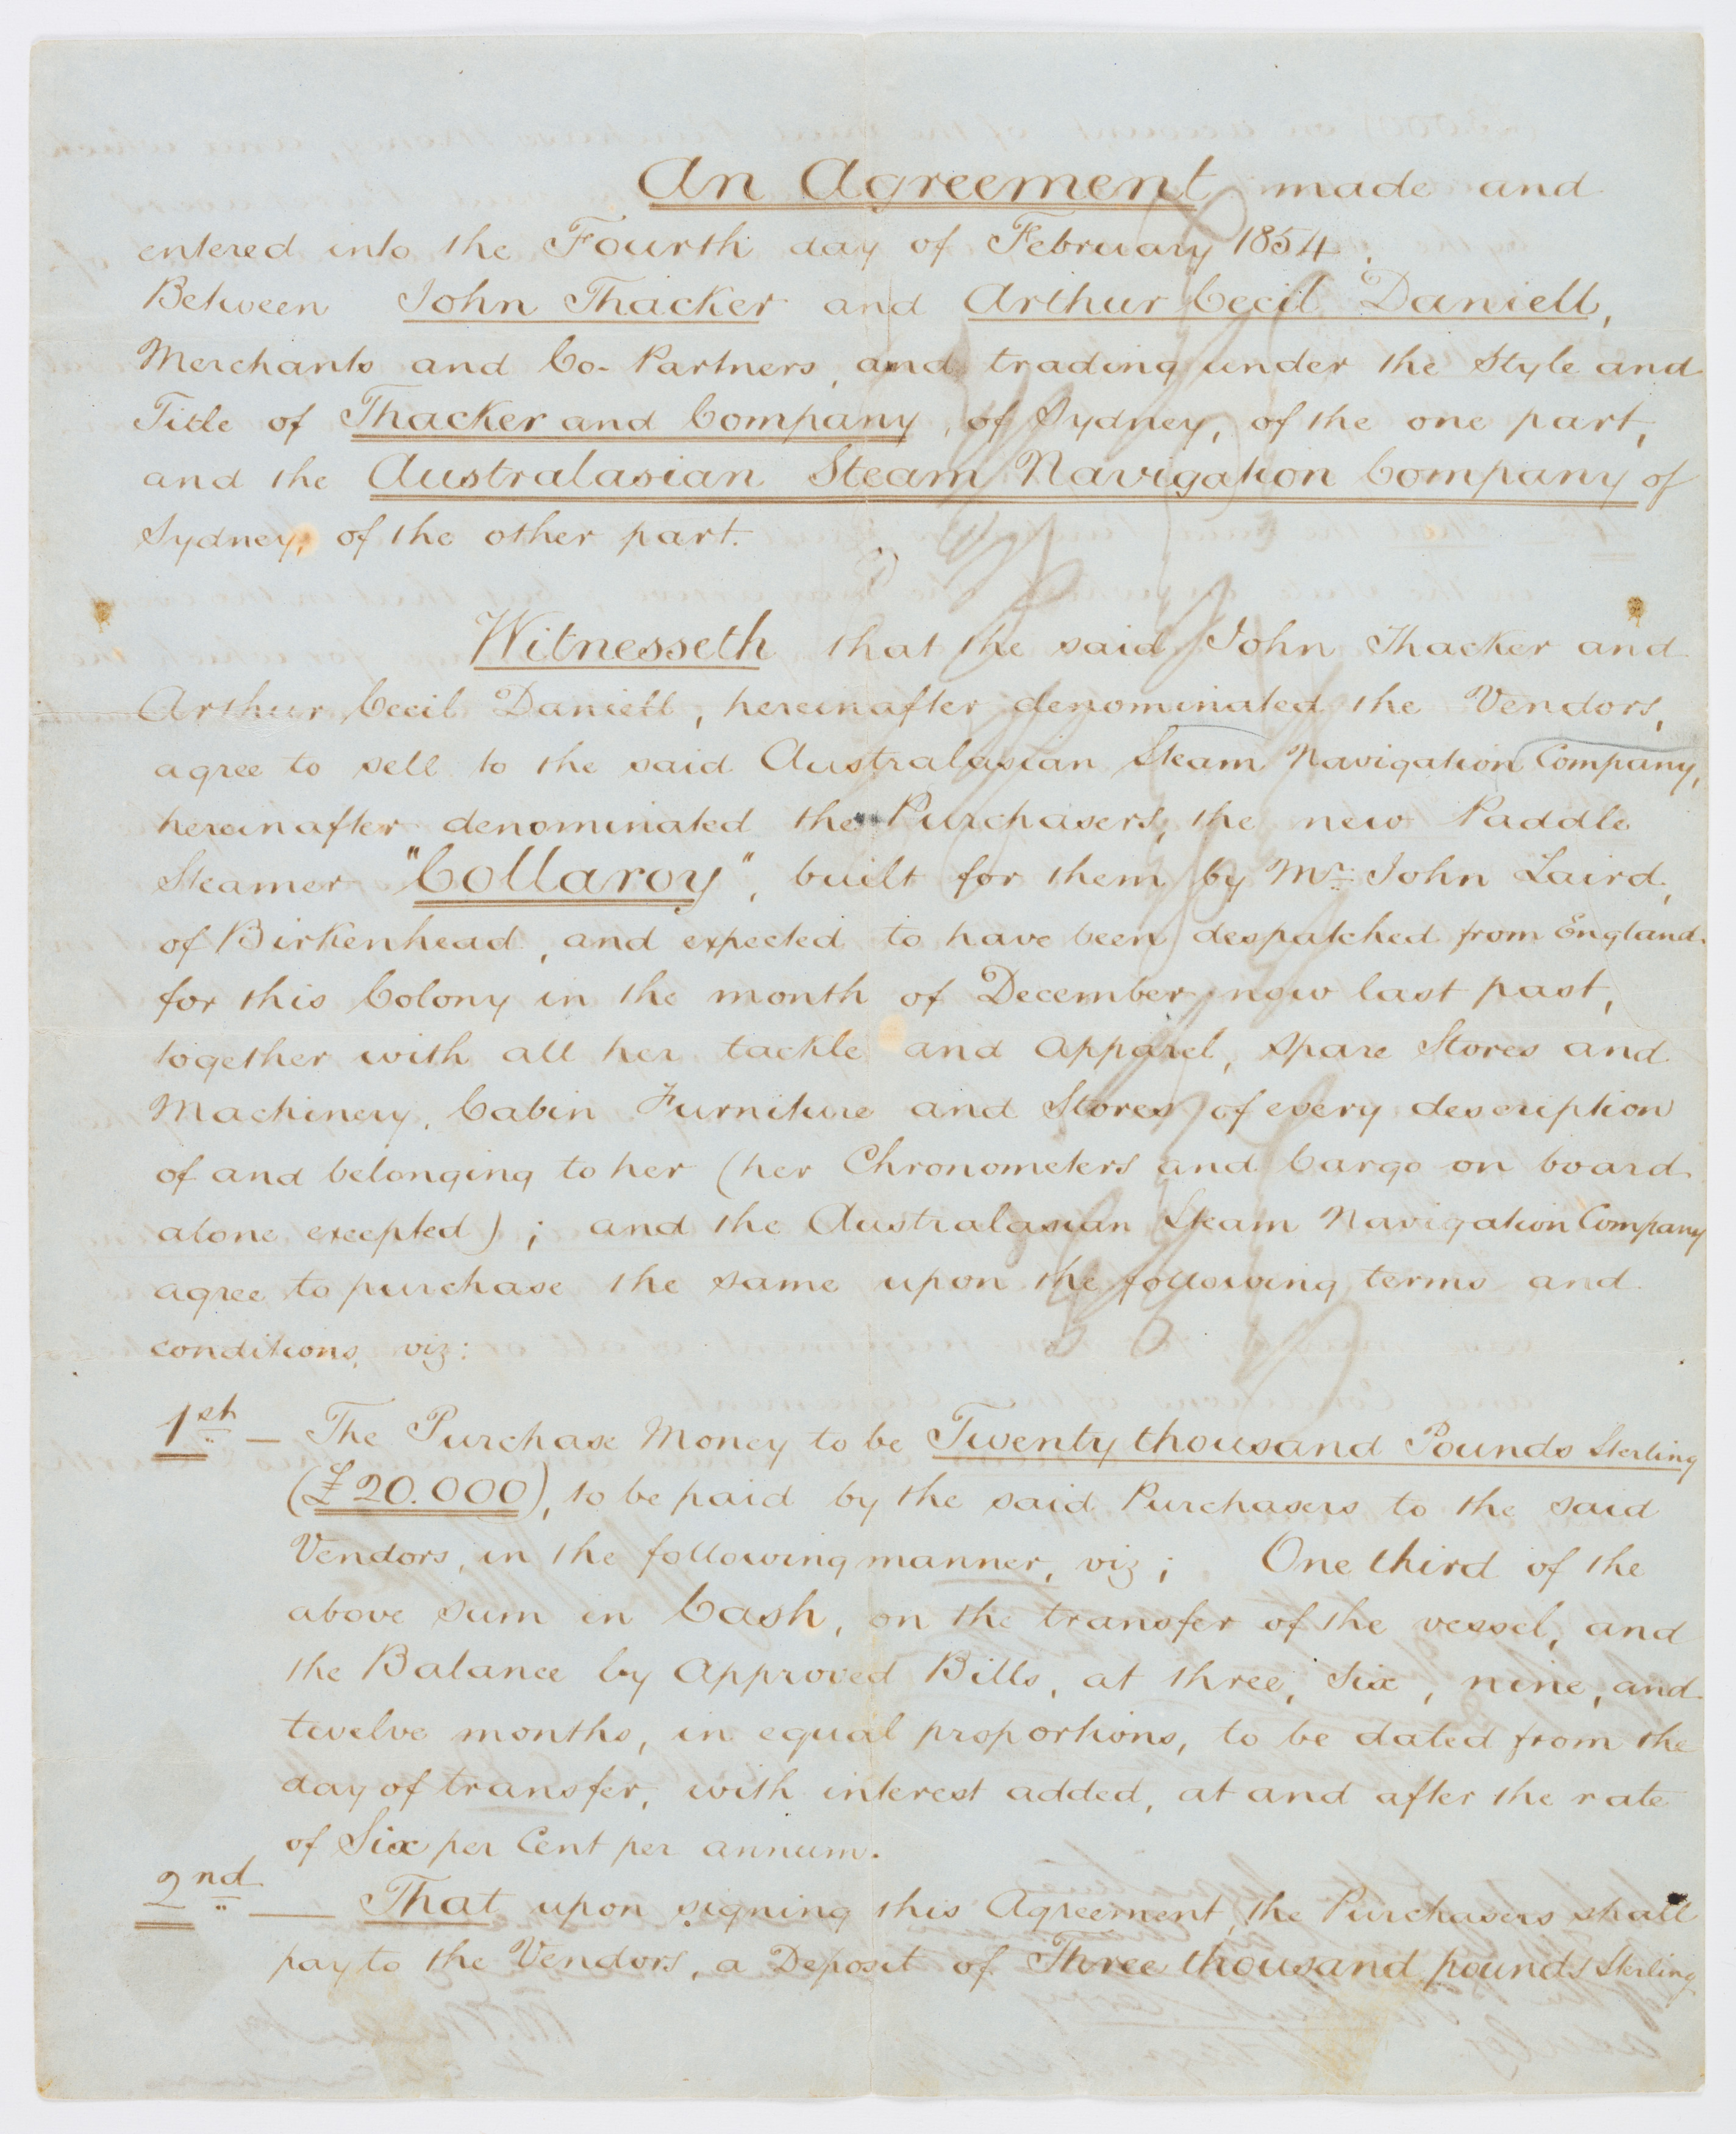 An Agreement made and
entered into the Fourth day of February 1854.
Between John Thacker and Arthur Cecil Daniell,
Merchants and Co-Partners, and trading under the Style and
Title of Thacker and Company, of Sydney, of the one part,
and the Australasian Steam Navigation Company of
Sydney, of the other part.
Witnesseth that the said John Thacker and
Arthur Cecil Daniell, hereinafter denominated the Vendors,
agree to sell to the said Australasian Steam Navigation Company,
hereinafter denominated the Purchasers, the new Paddle
Steamer "Collaroy", built for them by Mr. John Laird,
of Birkenhead, and expected to have been despatched from England
for this Colony in the month of December now last past,
together with all her tackle and apparel, spare Stores and
Machinery, Cabin Furniture and Stores of every description
of and belonging to her (her Chronometers and Cargo on board
alone excepted); and the Australasian Steam Navigation Company
agree to purchase the same upon the following terms and
conditions, viz:
1st — The Purchase Money to be Twenty thousand Pounds Sterling
(£20.000), to be paid by the said Purchasers to the said
Vendors, in the following manner, viz; One third of the
above sum in Cash, on the transfer of the vessel, and
the Balance by Approved Bills, at three, Six, nine, and
twelve months, in equal proportions, to be dated from the
day of transfer, with interest added, at and after the rate
of Six per Cent per annum.
2nd — That upon signing this Agreement, the Purchasers shall
pay to the Vendors, a Deposit of Three thousand pounds Sterling